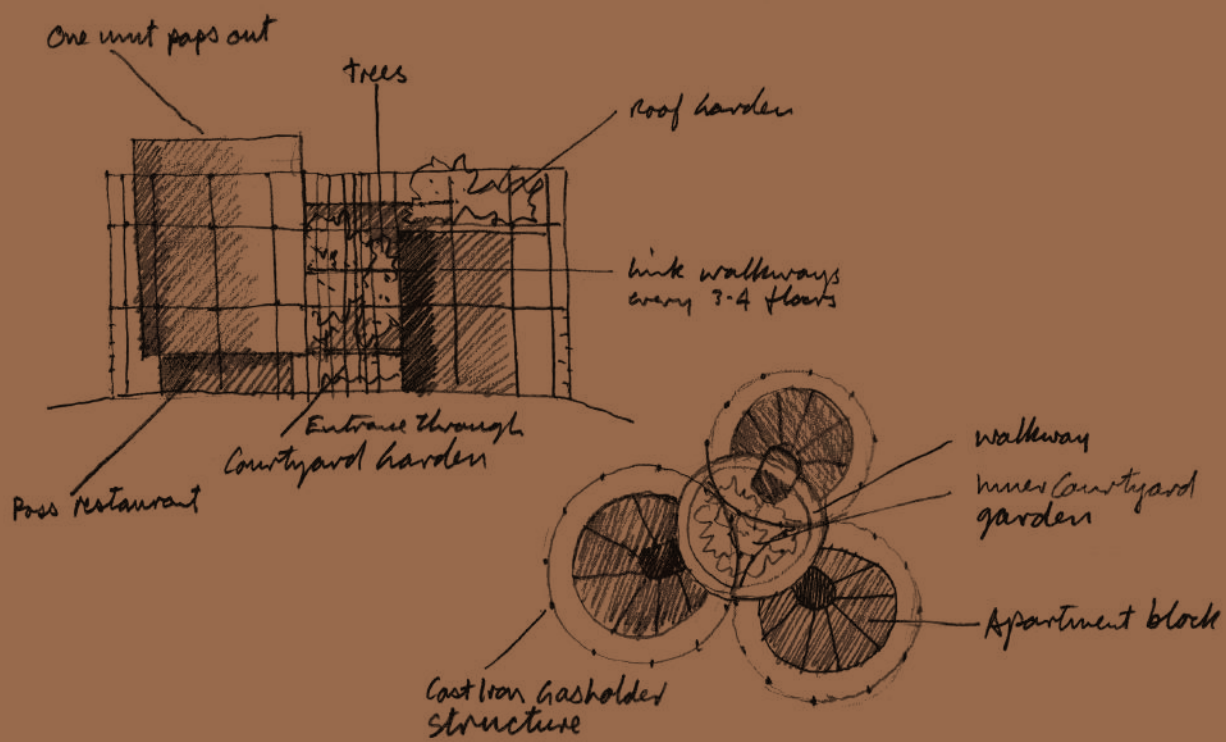 One unit pops out
trees
Roof Garden
Link walkways
every 3-4 floors
Entrance through
Courtyard Garden
Poss restaurant
walkway
Inner Courtyard
garden
Apartment block
Cast Iron Gasholder
structure